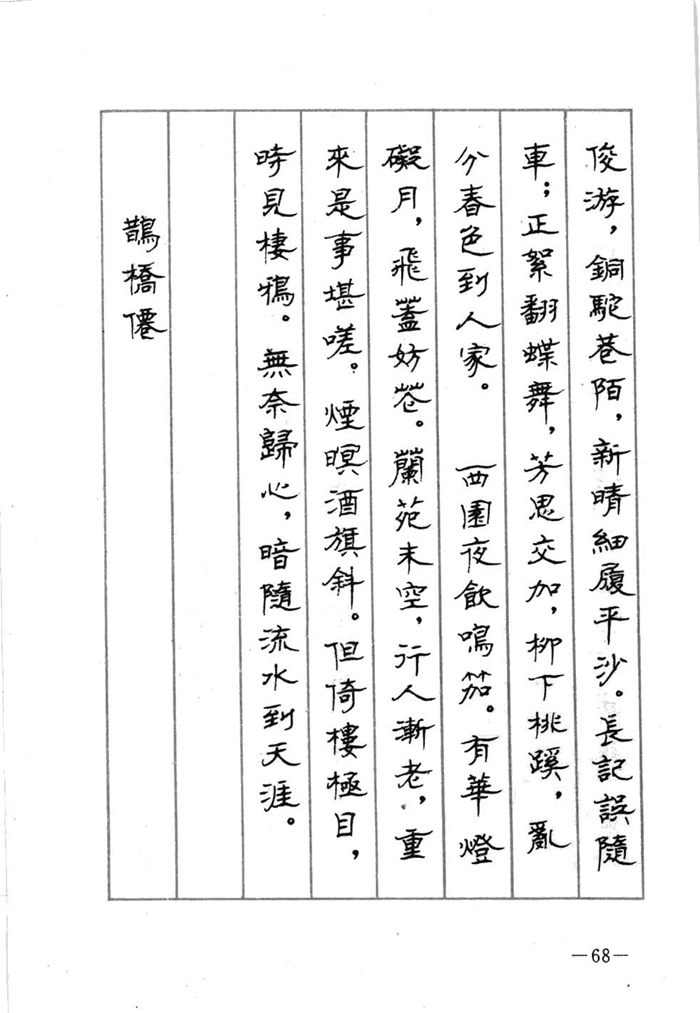 俊游，銅駝巷陌，新晴細履平沙。長記誤隨
車；正絮翻蝶舞，芳思交加，柳下桃蹊，亂
分春色到人家。　西園夜飲鳴笳。有華燈
礙月，飛蓋妨花。蘭苑未空，行人漸老，重
來是事堪嗟。煙暝酒旗斜。但倚樓極目，
時見棲鴉。無奈歸心，暗隨流水到天涯。
鵲橋僊
—68—